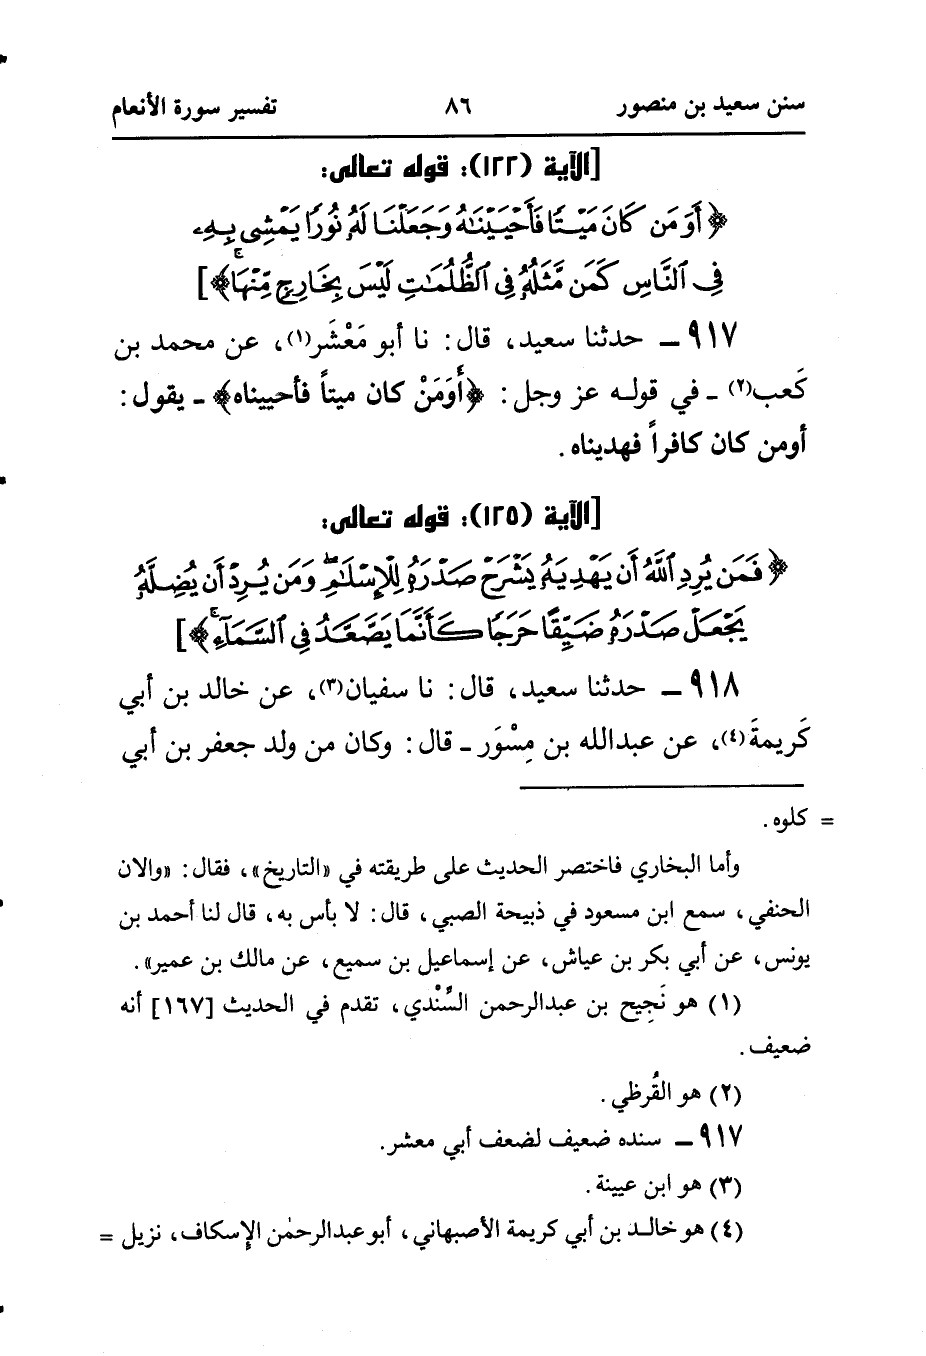 سنن سعيد بن منصور ٨٦ تفسير سورة الأنعام
[الآية (١٢٢): قوله تعالى:
﴿أَوَمَن كَانَ مَيْتًا فَأَحْيَيْنَٰهُ وَجَعَلْنَا لَهُۥ نُورًا يَمْشِى بِهِۦ
فِى ٱلنَّاسِ كَمَن مَّثَلُهُۥ فِى ٱلظُّلُمَٰتِ لَيْسَ بِخَارِجٍ مِّنْهَا ۚ﴾]
٩١٧ ــ حدثنا سعيد، قال: نا أبو مَعْشَر(١)، عن محمد بن
كَعب(٢) ـ في قوله عز وجل: ﴿أَوَمَنْ كان ميتاً فأحييناه﴾ ـ يقول:
أومن كان كافراً فهديناه.
[الآية (١٢٥): قوله تعالى:
﴿فَمَن يُرِدِ ٱللَّهُ أَن يَهْدِيَهُۥ يَشْرَحْ صَدْرَهُۥ لِلْإِسْلَٰمِ ۖ وَمَن يُرِدْ أَن يُضِلَّهُۥ
يَجْعَلْ صَدْرَهُۥ ضَيِّقًا حَرَجًا كَأَنَّمَا يَصَّعَّدُ فِى ٱلسَّمَآءِ ۚ﴾]
٩١٨ ــ حدثنا سعيد، قال: نا سفيان(٣)، عن خالد بن أبي
كَريمةَ(٤)، عن عبدالله بن مِسْوَر ـ قال: وكان من ولد جعفر بن أبي
= كلوه.
وأما البخاري فاختصر الحديث على طريقته في «التاريخ»، فقال: «والان
الحنفي، سمع ابن مسعود في ذبيحة الصبي، قال: لا بأس به، قال لنا أحمد بن
يونس، عن أبي بكر بن عياش، عن إسماعيل بن سميع، عن مالك بن عمير».
(١) هو نَجِيح بن عبدالرحمن السِّنْدي، تقدم في الحديث [١٦٧] أنه
ضعيف.
(٢) هو القُرظي.
٩١٧ ــ سنده ضعيف لضعف أبي معشر.
(٣) هو ابن عيينة.
(٤) هو خالد بن أبي كريمة الأصبهاني، أبو عبدالرحمٰن الإسكاف، نزيل =